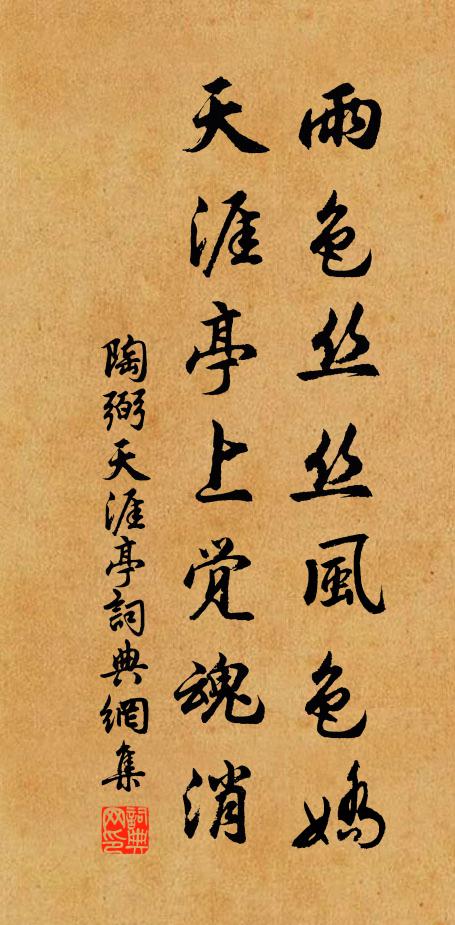 雨色丝丝風色嬌
天涯亭上觉魂消
陶弼天涯亭詞典網集
詞典网印